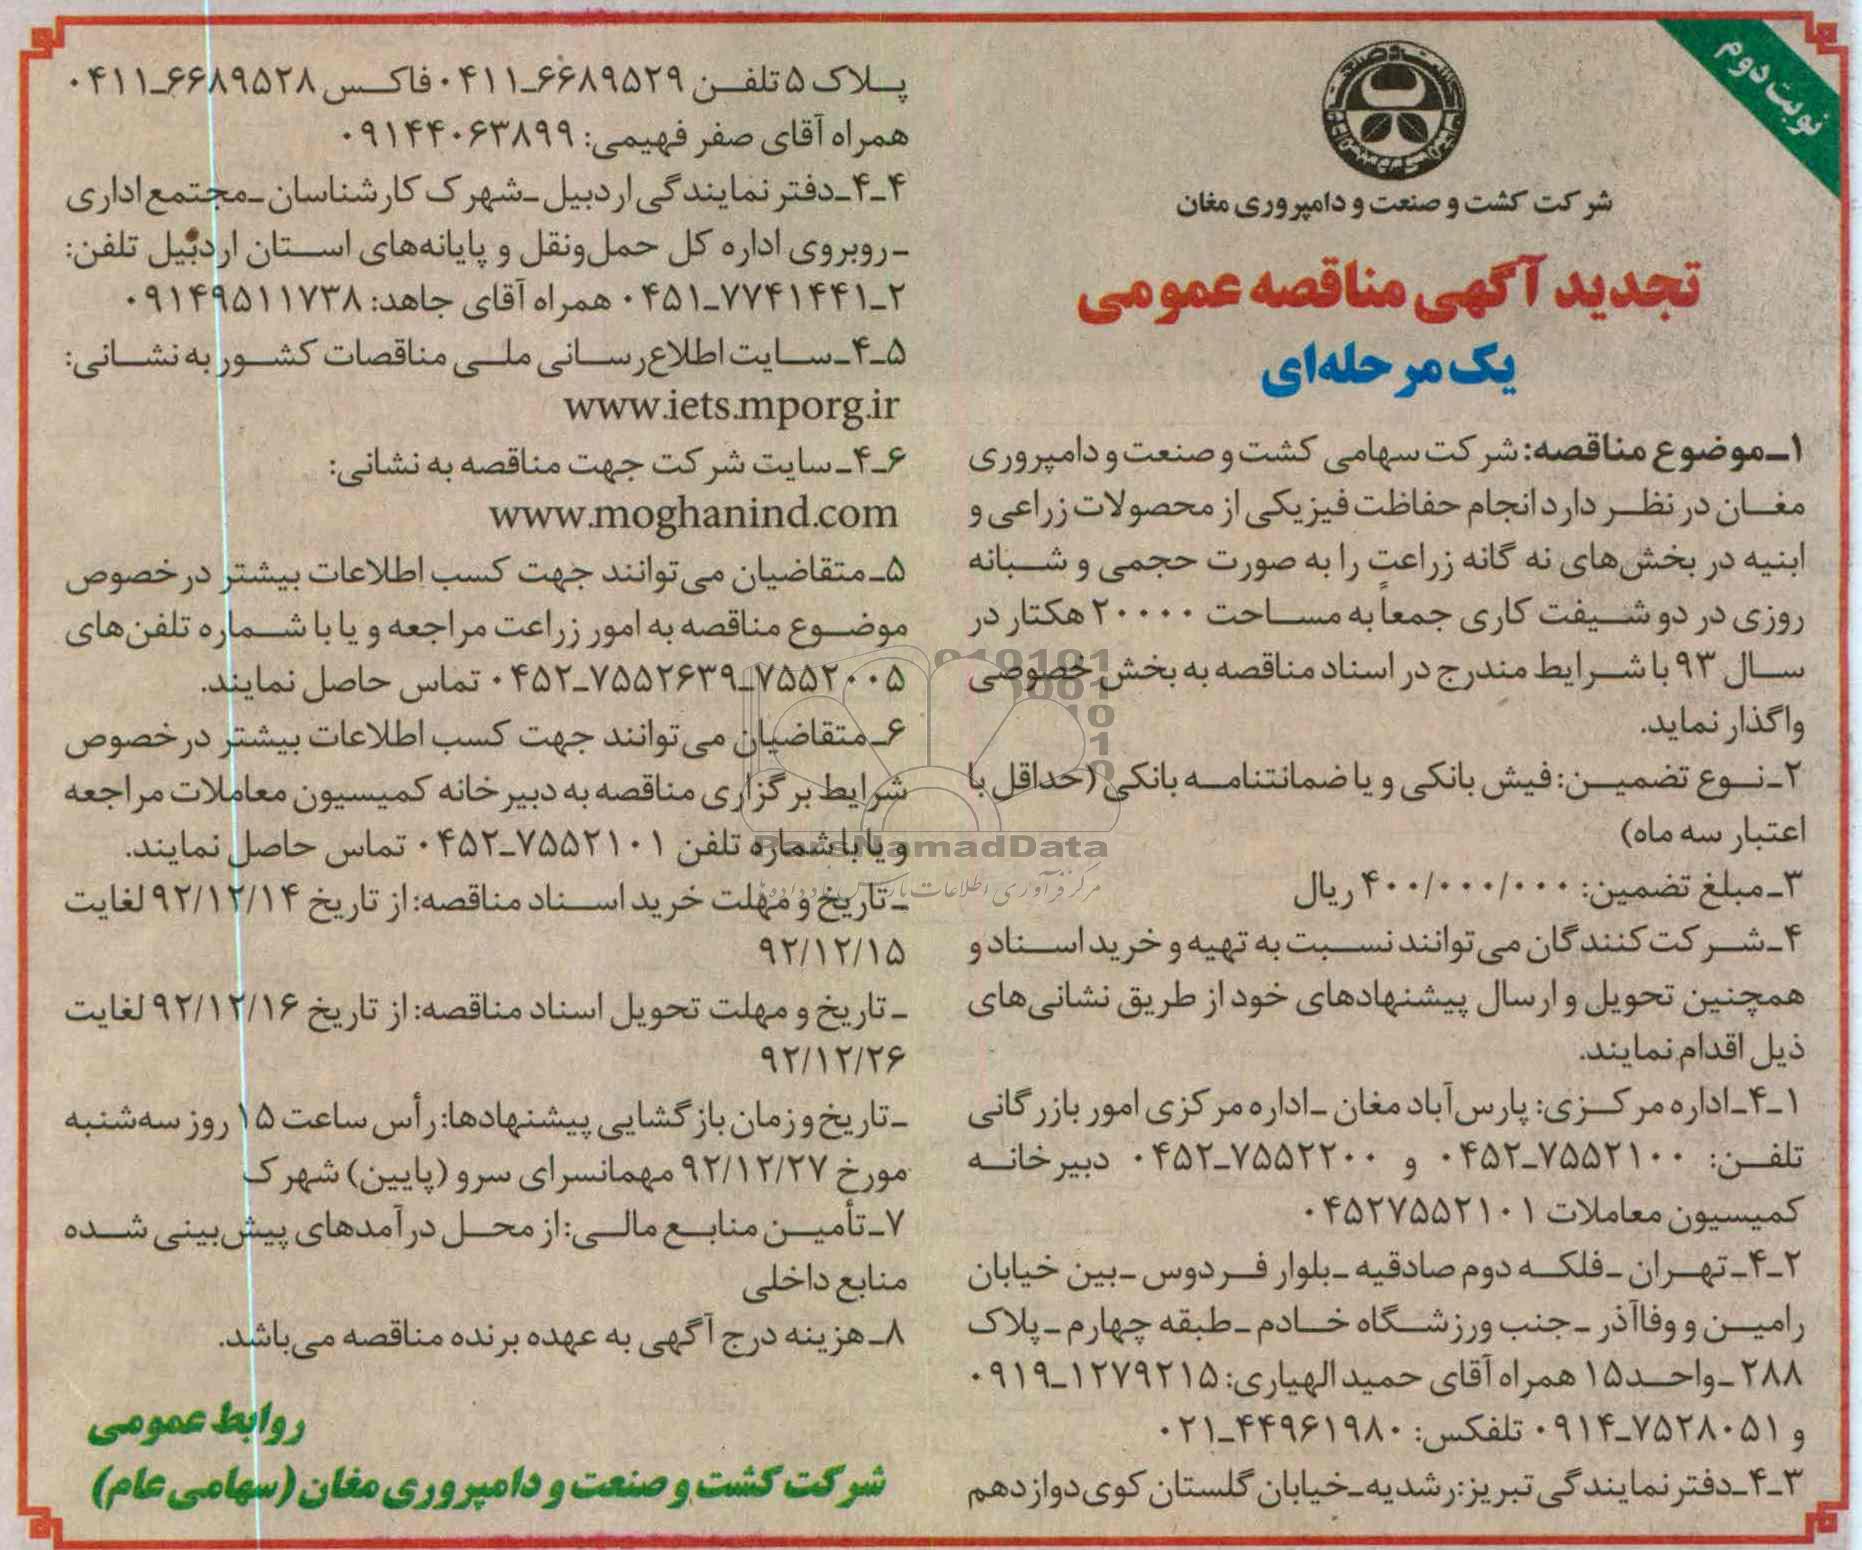 نوبت دوم
شرکت کشت و صنعت و دامپروری مغان
تجدید آگهی مناقصه عمومی
یک مرحله‌ای
۱ـ موضوع مناقصه: شرکت سهامی کشت و صنعت و دامپروری
مغـان در نظـر دارد انجام حفاظت فیزیکی از محصولات زراعی و
ابنیه در بخش‌های نه گانه زراعت را به صورت حجمی و شبانه
روزی در دو شیفت کاری جمعاً به مساحت ۲۰۰۰۰ هکتار در
سـال ۹۳ با شـرایط مندرج در اسناد مناقصه به بخش خصوصی
واگذار نماید.
۲ـ نـوع تضمیـن: فیش بانکی و یا ضمانتنامـه بانکی (حداقل با
اعتبار سه ماه)
۳ـ مبلغ تضمین: ۴۰۰/۰۰۰/۰۰۰ ریال
۴ـ شـرکت‌کنندگان می‌توانند نسـبت به تهیه و خرید اسـناد و
همچنین تحویل و ارسال پیشنهادهای خود از طریق نشانی‌های
ذیل اقدام نمایند.
۴ـ۱ـ اداره مرکـزی: پارس‌آباد مغان ـ اداره مرکزی امور بازرگانی
تلفـن: ۷۵۵۲۱۰۰ـ۰۴۵۲ و ۷۵۵۲۲۰۰ـ۰۴۵۲ دبیرخانـه
کمیسیون معاملات ۰۴۵۲۷۵۵۲۱۰۱
۴ـ۲ـ تهـران ـ فلکـه دوم صادقیه ـ بلوار فـردوس ـ بین خیابان
رامیـن و وفاآذر ـ جنب ورزشـگاه خـادم ـ طبقه چهارم ـ پلاک
۲۸۸ ـ واحـد ۱۵ همراه آقای حمید الهیاری: ۱۲۷۹۲۱۵ـ۰۹۱۹
و ۷۵۲۸۰۵۱ـ۰۹۱۴ تلفکس: ۴۴۹۶۱۹۸۰ـ۰۲۱
۴ـ۳ـ دفتر نمایندگی تبریز: رشدیه ـ خیابان گلستان کوی دوازدهم
پـلاک ۵ تلفـن ۶۶۸۹۵۲۹ـ۰۴۱۱ فاکـس ۶۶۸۹۵۲۸ـ۰۴۱۱
همراه آقای صفر فهیمی: ۰۹۱۴۴۰۶۳۸۹۹
۴ـ۴ـ دفتر نمایندگی اردبیل ـ شهرک کارشناسان ـ مجتمع اداری
ـ روبروی اداره کل حمل‌ونقل و پایانه‌های اسـتان اردبیل تلفن:
۲ـ۷۷۴۱۴۴۱ـ۰۴۵۱ همراه آقای جاهد: ۰۹۱۴۹۵۱۱۷۳۸
۴ـ۵ـ سـایت اطلاع‌رسـانی ملـی مناقصات کشـور به نشـانی:
www.iets.mporg.ir
۴ـ۶ـ سایت شرکت جهت مناقصه به نشانی:
www.moghanind.com
۵ـ متقاضیان می‌توانند جهت کسب اطلاعات بیشتر در خصوص
موضـوع مناقصه به امور زراعت مراجعه و یا با شـماره تلفن‌های
۷۵۵۲۰۰۵ـ۷۵۵۲۶۳۹ـ۰۴۵۲ تماس حاصل نمایند.
۶ـ متقاضیان می‌توانند جهت کسب اطلاعات بیشتر در خصوص
شرایط برگزاری مناقصه به دبیرخانه کمیسیون معاملات مراجعه
و یا با شماره تلفن ۷۵۵۲۱۰۱ـ۰۴۵۲ تماس حاصل نمایند.
ـ تاریخ و مهلت خرید اسـناد مناقصه: از تاریخ ۹۲/۱۲/۱۴ لغایت
۹۲/۱۲/۱۵
ـ تاریخ و مهلت تحویل اسناد مناقصه: از تاریخ ۹۲/۱۲/۱۶ لغایت
۹۲/۱۲/۲۶
ـ تاریخ و زمان بازگشایی پیشنهادها: رأس ساعت ۱۵ روز سه‌شنبه
مورخ ۹۲/۱۲/۲۷ مهمانسرای سرو (پایین) شهرک
۷ـ تأمیـن منابـع مالـی: از محـل درآمدهای پیش‌بینی شـده
منابع داخلی
۸ـ هزینه درج آگهی به عهده برنده مناقصه می‌باشد.
روابط عمومی
شرکت کشت و صنعت و دامپروری مغان (سهامی عام)
ParsNamadData